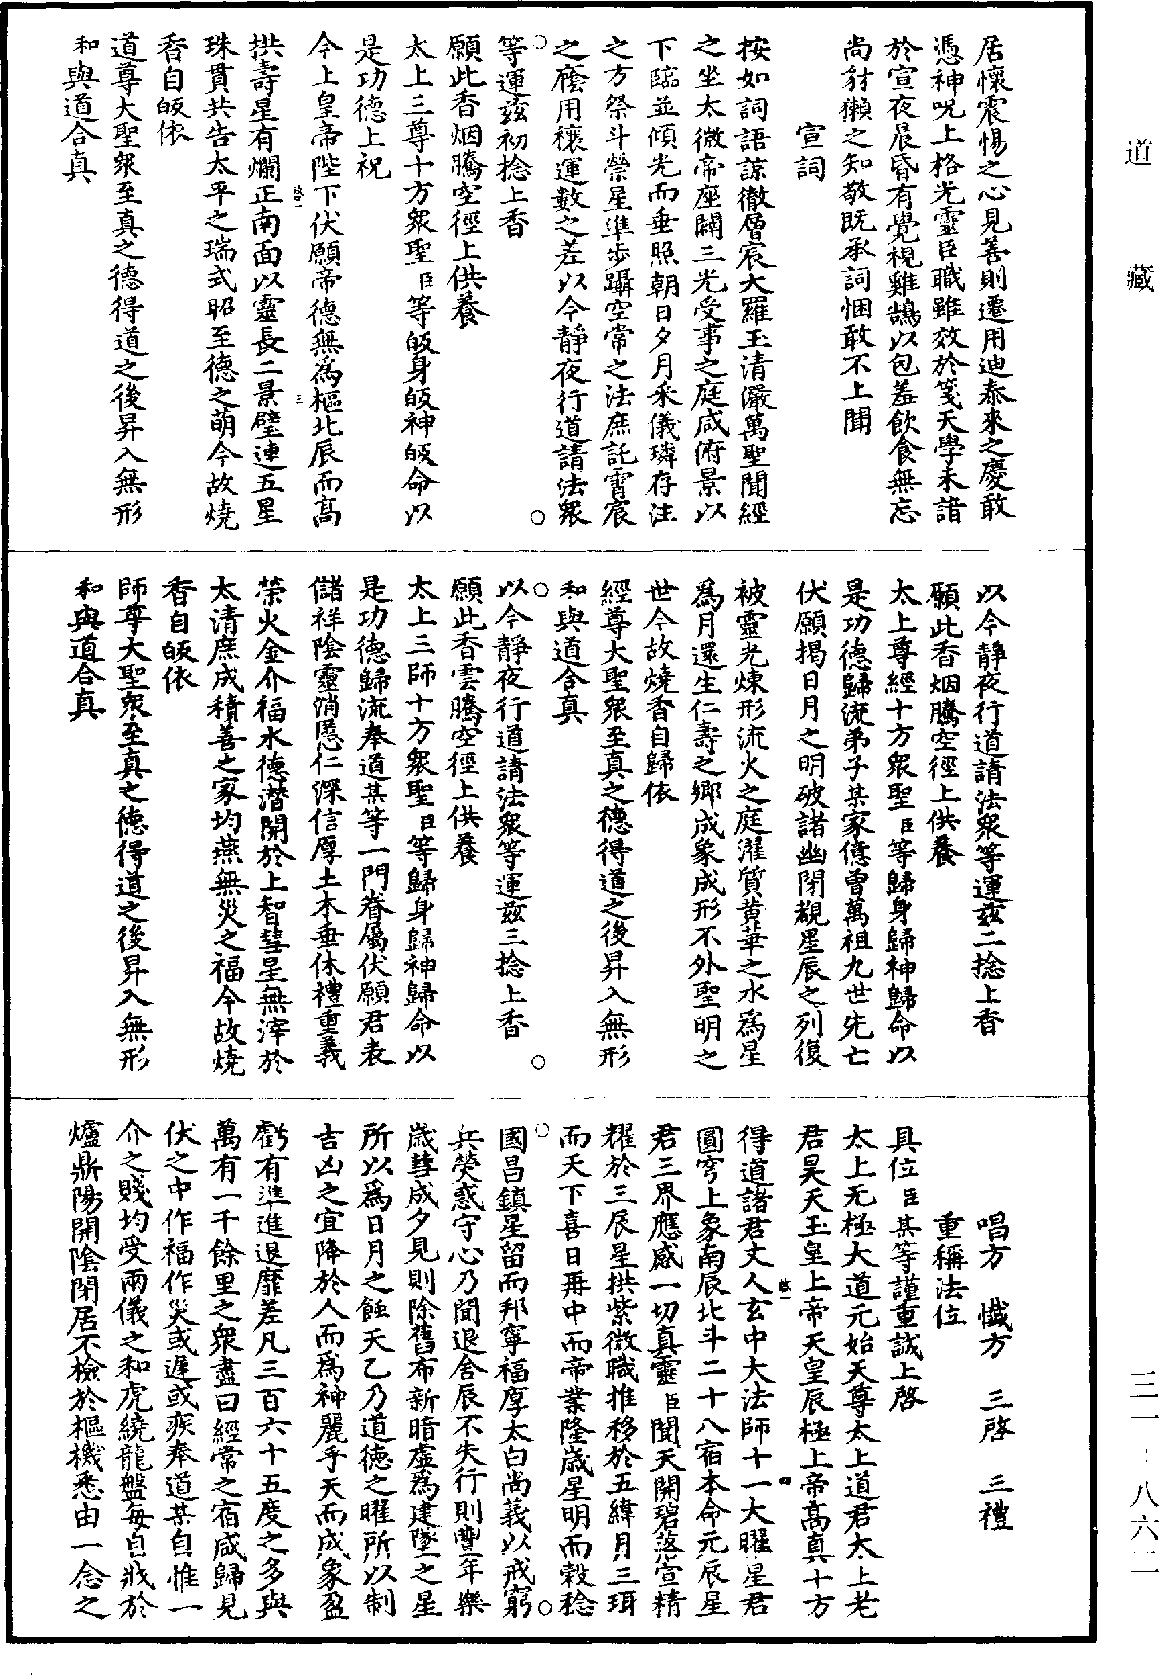 道藏
三一·八六二
居懷震惕之心見善則遷用迪泰來之慶敢
憑神呪上格光靈臣職雖效於箋天學未諳
於宣夜晨昏有覺視雞鵠以包羞飲食無忘
尚豺獺之知敬既承詞悃敢不上聞
宣詞
按如詞語諒徹層宸大羅玉清儼萬聖聞經
之坐太微帝座闢三光受事之庭咸俯景以
下臨並傾光而垂照朝日夕月釆儀璘存注
之方祭斗禜星準步躡空常之法庶託霄宸
之廕用禳運數之差以今靜夜行道請法衆
等運茲初捻上香
願此香烟騰空徑上供養
太上三尊十方衆聖臣等皈身皈神皈命以
是功德上祝
今上皇帝陛下伏願帝德無爲樞北辰而高
拱壽星有爛正南面以靈長二景璧連五星
珠貫共告太平之瑞式昭至德之萌今故燒
香自皈依
道尊大聖衆至真之德得道之後昇入無形
和與道合真
以今靜夜行道請法衆等運茲二捻上香
願此香烟騰空徑上供養
太上尊經十方衆聖臣等歸身歸神歸命以
是功德歸流弟子某家億曾萬祖九世先亡
伏願揭日月之明破諸幽閉覩星辰之列復
被靈光煉形流火之庭濯質黃華之水爲星
爲月還生仁壽之鄉成象成形不外聖明之
世今故燒香自歸依
經尊大聖衆至真之德得道之後昇入無形
和與道合真
以今靜夜行道請法衆等運茲三捻上香
願此香雲騰空徑上供養
太上三師十方衆聖臣等歸身歸神歸命以
是功德歸流奉道某等一門眷屬伏願君表
儲祥陰靈消慝仁深信厚土木垂休禮重義
榮火金介福水德潛開於上智彗星無滓於
太清庶成積善之家均燕無災之福今故燒
香自皈依
師尊大聖衆至真之德得道之後昇入無形
和與道合真
唱方　懺方　三啓　三禮
重稱法位
具位臣某等謹重誠上啓
太上无極大道元始天尊太上道君太上老
君昊天玉皇上帝天皇辰極上帝高真十方
得道諸君丈人玄中大法師十一大曜星君
圓穹上象南辰北斗二十八宿本命元辰星
君三界應感一切真靈臣聞天開碧落宣精
耀於三辰星拱紫微職推移於五緯月三珥
而天下喜日再中而帝業隆歲星明而穀稔
國昌鎮星留而邦寧福厚太白尚義以戒窮
兵熒惑守心乃聞退舍辰不失行則豐年樂
歲彗成夕見則除舊布新暗虛爲建墜之星
所以爲日月之蝕天乙乃道德之曜所以制
吉凶之宜降於人而爲神麗乎天而成象盈
虧有準進退靡差凡三百六十五度之多與
萬有一千餘里之衆盡曰經常之宿咸歸見
伏之中作福作災或遲或疾奉道某自惟一
介之賤均受兩儀之和虎繞龍盤每自戕於
爐鼎陽開陰閉居不檢於樞機悉由一念之